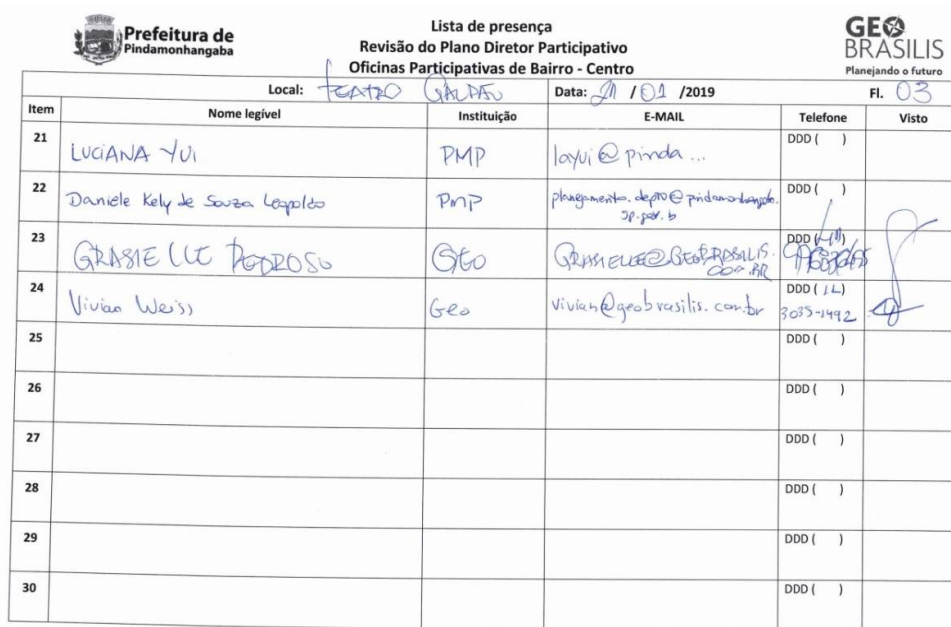 Prefeitura de
Pindamonhangaba
Lista de presença
Revisão do Plano Diretor Participativo
Oficinas Participativas de Bairro - Centro
GEO
BRASILIS
Planejando o futuro
Local: TEATRO GALPÃO Data: 21 / 01 /2019 Fl. 03
Item Nome legível Instituição E-MAIL Telefone Visto
21 LUCIANA YUI PMP layui@pinda ... DDD ( )
22 Daniele Kely de Souza Leopoldo PMP planejamento.depto@pindamonhangaba. DDD ( )
sp.gov.b
23 GRASIELLE PEDROSO GEO GRASIELLE@GEOBRASILIS. DDD (
COM.BR
24 Vivian Weiss Geo vivian@geobrasilis.com.br DDD (12)
3035-1492
25 DDD ( )
26 DDD ( )
27 DDD ( )
28 DDD ( )
29 DDD ( )
30 DDD ( )